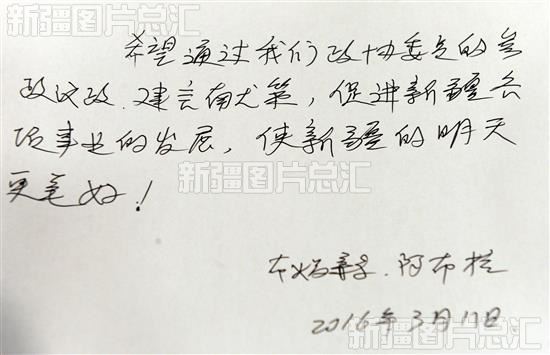 新疆图片总汇 新疆图片总汇
希望通过我们政协委员的参
政议政.建言献策,促进新疆各
项事业的发展,使新疆的明天
新疆图片总汇
更美好!
阿布拉
2016年3月11日.
新疆图片总汇 新疆图片总汇